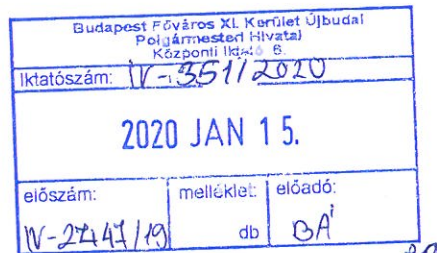 Budapest Főváros XI. Kerület Újbudai
Polgármesteri Hivatal
Központi Iktató 6.
Iktatószám: IV-351/2020
2020 JAN 15.
előszám: melléklet: előadó:
IV-27447/19 db BA